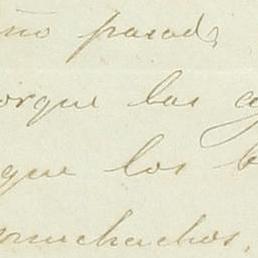 ño pasado
orque las
que los b
muchachos,